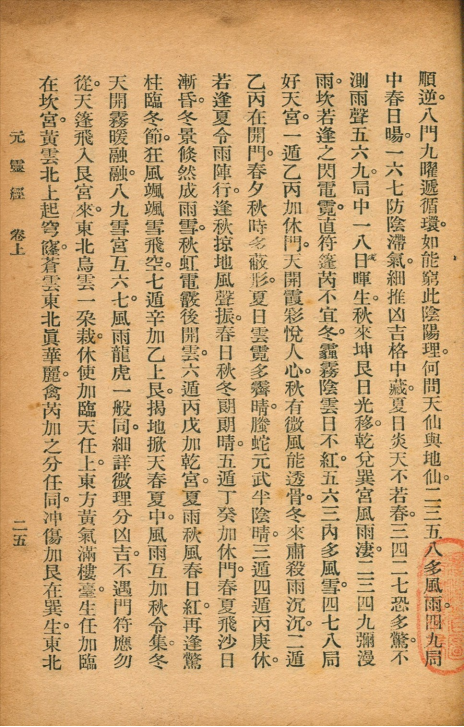 順逆。八門九曜遞循環。如能窮此陰陽理。何問天仙與地仙。二三五八多風雨。四九局
中春日暘。一六七防陰滯氣。細推凶吉格中藏。夏日炎天不若春。三四二七恐多驚。不
測雨聲五六九。局中一八日暉生。秋來坤艮日光移。乾兌巽宮風雨淒。二三四九彌漫
雨。坎若逢之閃電霓。直符篷芮不宜冬。霾霧陰雲日不紅。五六三內多風雪。四七八局
好天宮。一遁乙丙加休門。天開霞彩悅人心。秋有微風能透骨。冬來肅殺雨沉沉。二遁
乙丙在開門。春夕秋時多蔽形。夏日雲霓多霽晴。螣蛇元武半陰晴。三遁四遁丙庚休。
若逢夏令雨陣行。逢秋掠地風聲振。春日秋冬朗朗晴。五遁丁癸加休門。春夏飛沙日
漸昏。冬景倏然成雨雪。秋虹電霰後開雲。六遁丙戊加乾宮。夏雨秋風春日紅。再逢驚
柱臨冬節。狂風颯颯雪飛空。七遁辛加乙上艮。揭地掀天春夏中。風雨互加秋令集。冬
天開霧暖融融。八九雪宮互六七。風雨龍虎一般同。細詳微理分凶吉。不遇門符應勿
從。天蓬飛入艮宮來。東北烏雲一朶栽。休使加臨天任上。東方黃氣滿樓臺。生任加臨
在坎宮。黃雲北上起穹窿。蒼雲東北眞華麗。禽芮加之分任同。冲傷加艮在巽生。東北
元靈經 卷上 二五